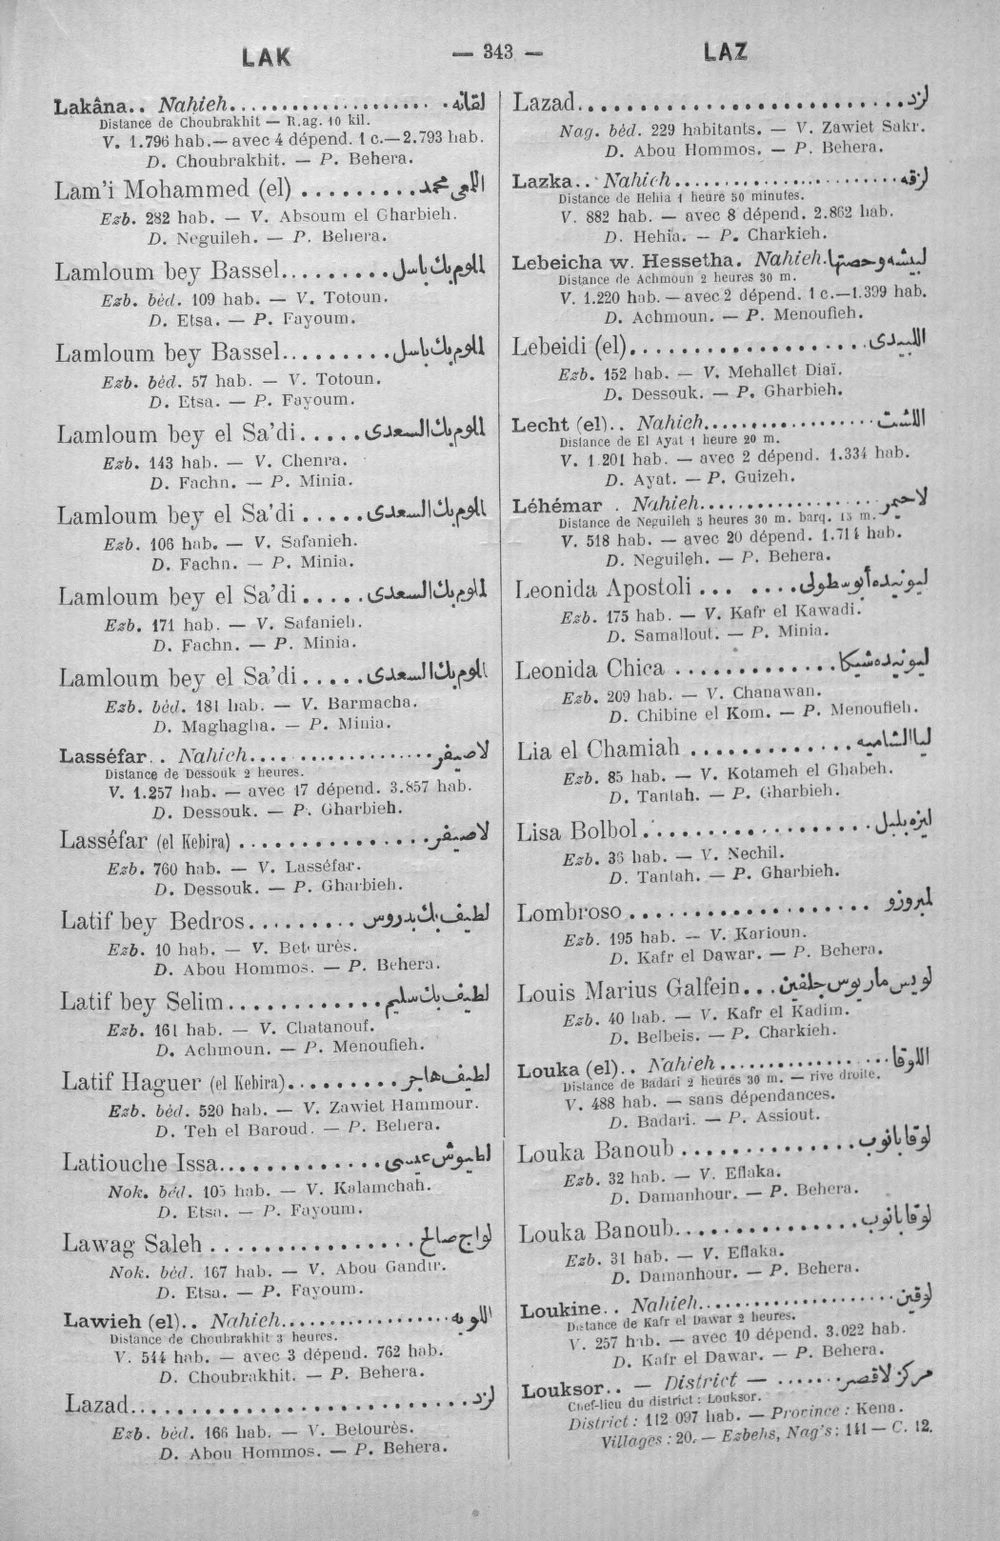 LAK — 343 — LAZ
Lakâna.. Nahieh.................... لقانه
Distance de Choubrakhit — R.ag. 10 kil.
V. 1.796 hab.— avec 4 dépend. 1 c.—2.793 hab.
D. Choubrakhit. — P. Behera.
Lam'i Mohammed (el) ......... اللمعى محمد
Ezb. 282 hab. — V. Absoum el Gharbieh.
D. Neguileh. — P. Behera.
Lamloum bey Bassel......... لملوم بك باسل
Ezb. béd. 109 hab. — V. Totoun.
D. Etsa. — P. Fayoum.
Lamloum bey Bassel......... لملوم بك باسل
Ezb. béd. 57 hab. — V. Totoun.
D. Etsa. — P. Fayoum.
Lamloum bey el Sa'di..... لملوم بك السعدى
Ezb. 143 hab. — V. Chenra.
D. Fachn. — P. Minia.
Lamloum bey el Sa'di ..... لملوم بك السعدى
Ezb. 106 hab. — V. Safanieh.
D. Fachn. — P. Minia.
Lamloum bey el Sa'di ..... لملوم بك السعدى
Ezb. 171 hab. — V. Safanieh.
D. Fachn. — P. Minia.
Lamloum bey el Sa'di ..... لملوم بك السعدى
Ezb. béd. 181 hab. — V. Barmacha.
D. Maghagha. — P. Minia.
Lasséfar.. Nahieh.................. لاصيفر
Distance de Dessouk 2 heures.
V. 1.257 hab. — avec 17 dépend. 3.857 hab.
D. Dessouk. — P. Gharbieh.
Lasséfar (el Kebira) ............... لاصيفر
Ezb. 760 hab. — V. Lasséfar.
D. Dessouk. — P. Gharbieh.
Latif bey Bedros......... لطيف بك بدروس
Ezb. 10 hab. — V. Betourès.
D. Abou Hommos. — P. Behera.
Latif bey Selim............ لطيف بك سليم
Ezb. 161 hab. — V. Chatanouf.
D. Achmoun. — P. Menoufieh.
Latif Haguer (el Kebira)......... لطيف هاجر
Ezb. béd. 520 hab. — V. Zawiet Hammour.
D. Teh el Baroud. — P. Behera.
Latiouche Issa............. لطيوش عيسى
Nok. béd. 105 hab. — V. Kalamchah.
D. Etsa. — P. Fayoum.
Lawag Saleh ................ لواج صالح
Nok. béd. 167 hab. — V. Abou Gandir.
D. Etsa. — P. Fayoum.
Lawieh (el).. Nahieh................ اللويه
Distance de Choubrakhit 3 heures.
V. 544 hab. — avec 3 dépend. 762 hab.
D. Choubrakhit. — P. Behera.
Lazad........................... لزد
Ezb. béd. 166 hab. — V. Betourès.
D. Abou Hommos. — P. Behera.
Lazad........................... لزد
Nag. béd. 229 habitants. — V. Zawiet Sakr.
D. Abou Hommos. — P. Behera.
Lazka.. Nahieh..................... لزقه
Distance de Hehia 1 heure 50 minutes.
V. 882 hab. — avec 8 dépend. 2.862 hab.
D. Hehia. — P. Charkieh.
Lebeicha w. Hessetha. Nahieh. لبيشه وحصتها
Distance de Achmoun 2 heures 30 m.
V. 1.220 hab. — avec 2 dépend. 1 c.—1.399 hab.
D. Achmoun. — P. Menoufieh.
Lebeidi (el).................... اللبيدى
Ezb. 152 hab. — V. Mehallet Diaï.
D. Dessouk. — P. Gharbieh.
Lecht (el).. Nahieh................. اللشت
Distance de El Ayat 1 heure 20 m.
V. 1.201 hab. — avec 2 dépend. 1.334 hab.
D. Ayat. — P. Guizeh.
Léhémar . Nahieh.................. لاحيمر
Distance de Neguileh 5 heures 30 m. barq. 15 m.
V. 518 hab. — avec 20 dépend. 1.714 hab.
D. Neguileh. — P. Behera.
Leonida Apostoli ... .... ليونيده أبوسطولى
Ezb. 175 hab. — V. Kafr el Kawadi.
D. Samallout. — P. Minia.
Leonida Chica ............. ليونيده شيكا
Ezb. 209 hab. — V. Chanawan.
D. Chibine el Kom. — P. Menoufieh.
Lia el Chamiah ............. ليا الشاميه
Ezb. 85 hab. — V. Kotameh el Ghabeh.
D. Tantah. — P. Gharbieh.
Lisa Bolbol.................. ليزه بلبل
Ezb. 36 hab. — V. Nechil.
D. Tantah. — P. Gharbieh.
Lombroso ................... لمبروزو
Ezb. 195 hab. — V. Karioun.
D. Kafr el Dawar. — P. Behera.
Louis Marius Galfein... لويس ماريوس جلفين
Ezb. 40 hab. — V. Kafr el Kadim.
D. Belbeis. — P. Charkieh.
Louka (el).. Nahieh................ اللوقا
Distance de Badari 2 heures 30 m. — rive droite.
V. 488 hab. — sans dépendances.
D. Badari. — P. Assiout.
Louka Banoub .............. لوقا بانوب
Ezb. 32 hab. — V. Eflaka.
D. Damanhour. — P. Behera.
Louka Banoub............... لوقا بانوب
Ezb. 31 hab. — V. Eflaka.
D. Damanhour. — P. Behera.
Loukine.. Nahieh................... لوقين
Distance de Kafr el Dawar 2 heures.
V. 257 hab. — avec 10 dépend. 3.022 hab.
D. Kafr el Dawar. — P. Behera.
Louksor.. — District — ....... مركز لاقصر
Chef-lieu du district : Louksor.
District : 112 097 hab. — Province : Kena.
Villages : 20. — Ezbehs, Nag's : 141 — C. 12.